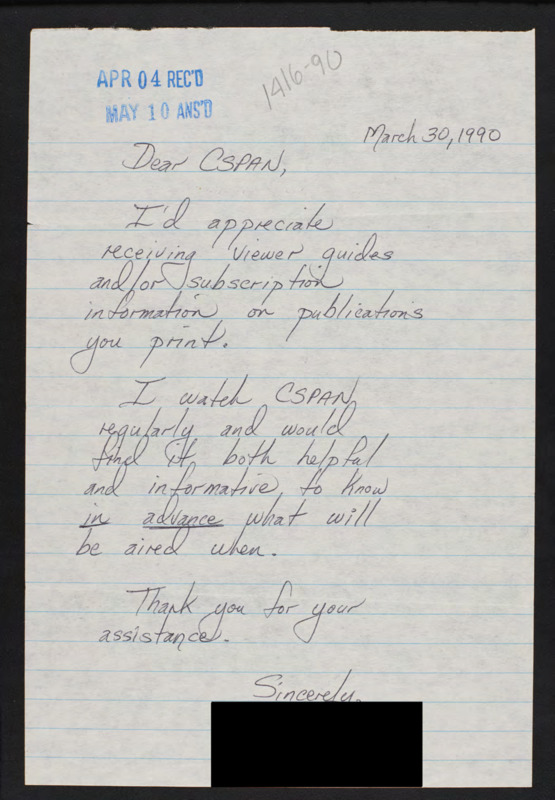 APR 04 REC'D
MAY 10 ANS'D
1416-90
March 30, 1990
Dear CSPAN,
I'd appreciate
receiving viewer guides
and/or subscription
information on publications
you print.
I watch CSPAN
regularly and would
find it both helpful
and informative to know
in advance what will
be aired when.
Thank you for your
assistance.
Sincerely,